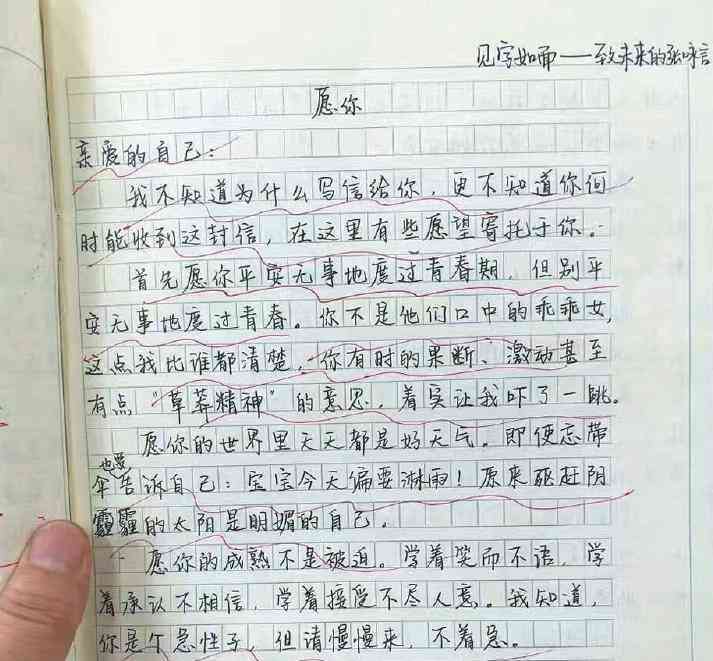 见字如面——致未来的张咏言
愿你
亲爱的自己：
我不知道为什么写信给你，更不知道你何
时能收到这封信，在这里有些愿望寄托于你。
首先愿你平安无事地度过青春期，但别平
安无事地度过青春。你不是他们口中的乖乖女，
这点我比谁都清楚，你有时的果断、激动甚至
有点“草莽精神”的意思，着实让我吓了一跳。
愿你的世界里天天都是好天气。即使忘带
伞也要告诉自己：宝宝今天偏要淋雨！原来驱赶阴
霾霾的太阳是明媚的自己。
愿你的成熟不是被迫。学着笑而不语，学
着承认不相信，学着接受不尽人意。我知道，
你是个急性子，但请慢慢来，不着急。